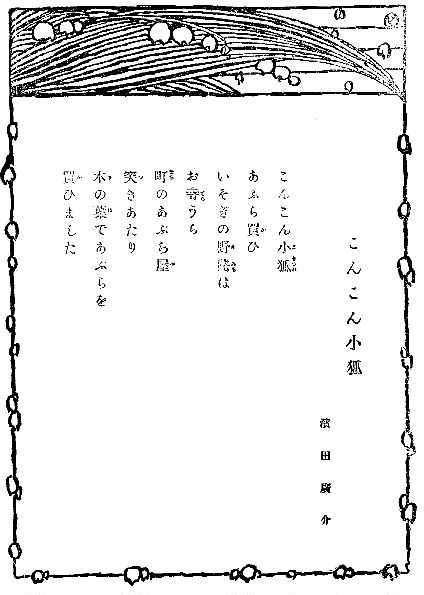 こんこん小狐
濱田廣介
こんこん小狐
あぶら買ひ
いそぎの野の
お寺うら
町のあぶら屋
突きあたり
木の葉であぶらを
買ひました